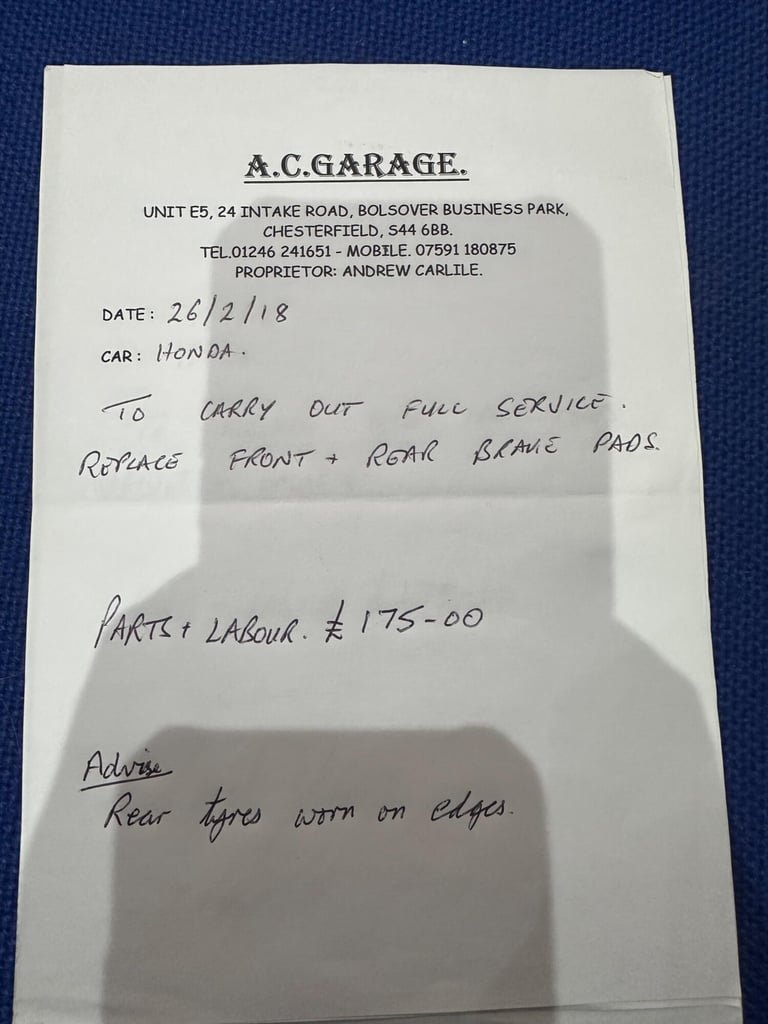 A.C.GARAGE.
UNIT E5, 24 INTAKE ROAD, BOLSOVER BUSINESS PARK,
CHESTERFIELD, S44 6BB.
TEL.01246 241651 - MOBILE. 07591 180875
PROPRIETOR: ANDREW CARLILE.
DATE: 26/2/18
CAR: HONDA.
TO CARRY OUT FULL SERVICE.
REPLACE FRONT + REAR BRAKE PADS.
PARTS + LABOUR. £175-00
Advise
Rear tyres worn on edges.